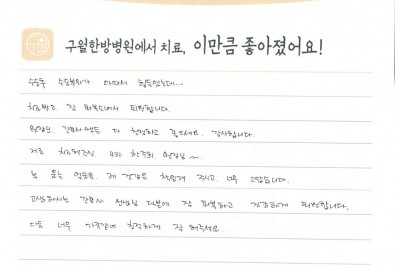 구월한방병원에서 치료, 이만큼 좋아졌어요!
수술후 수술부위가 아파서 힘들었는데...
치료받고 잘 회복되어서 퇴원합니다.
원장님, 간호사쌤들 다 친절하고 좋으세요. 감사합니다.
저를 치료해주신 원장님 ~
늘 웃는 얼굴로 제 건강을 챙겨 주시고 너무 고맙습니다.
고생하시는 간호사 선생님 덕분에 잘 회복하고 건강하게 퇴원합니다.
다들 너무 가족같이 친절하게 잘 해주세요.